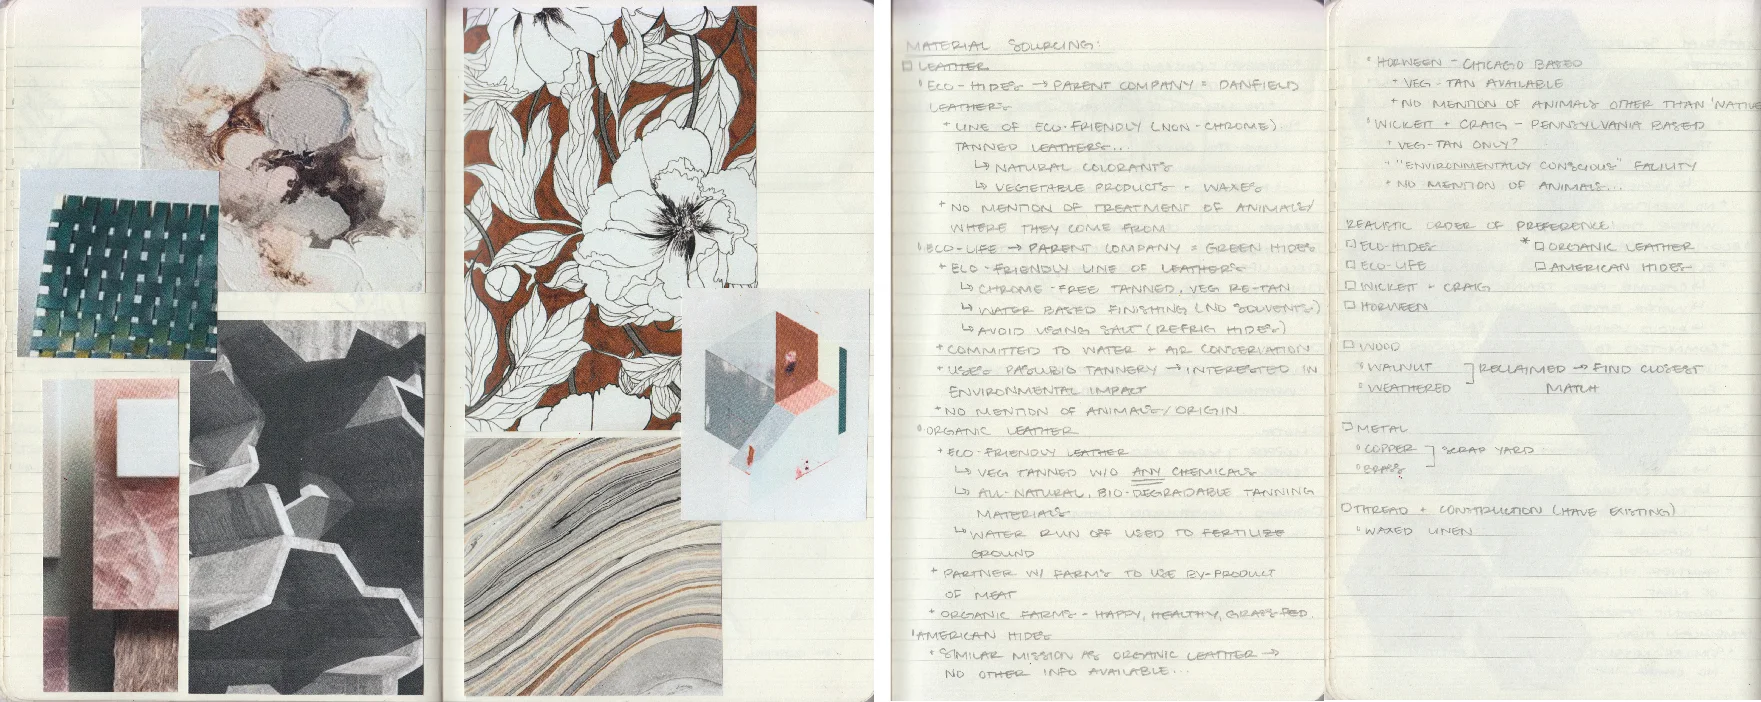 MATERIAL SOURCING:
□ LEATHER
° ECO-HIDES → PARENT COMPANY = DANFIELD
LEATHERS
+ LINE OF ECO-FRIENDLY (NON-CHROME)
TANNED LEATHERS...
↳ NATURAL COLORANTS
↳ VEGETABLE PRODUCTS + WAXES
+ NO MENTION OF TREATMENT OF ANIMALS/
WHERE THEY COME FROM
° ECO-LIFE → PARENT COMPANY = GREEN HIDES
+ ECO-FRIENDLY LINE OF LEATHERS
↳ CHROME-FREE TANNED, VEG RE-TAN
↳ WATER BASED FINISHING (NO SOLVENTS)
↳ AVOID USING SALT (REFRIG HIDES)
+ COMMITTED TO WATER + AIR CONSERVATION
+ USES PASUBIO TANNERY → INTERESTED IN
ENVIRONMENTAL IMPACT
+ NO MENTION OF ANIMALS/ORIGIN
° ORGANIC LEATHER
+ ECO-FRIENDLY LEATHER
↳ VEG TANNED W/O ANY CHEMICALS
↳ ALL-NATURAL, BIO-DEGRADABLE TANNING
MATERIALS
↳ WATER RUN OFF USED TO FERTILIZE
GROUND
+ PARTNER W/ FARMS TO USE BY-PRODUCT
OF MEAT
+ ORGANIC FARMS - HAPPY, HEALTHY, GRASS FED.
° AMERICAN HIDES
° SIMILAR MISSION AS ORGANIC LEATHER →
NO OTHER INFO AVAILABLE...
° HORWEEN - CHICAGO BASED
+ VEG-TAN AVAILABLE
+ NO MENTION OF ANIMALS OTHER THAN 'NATIVE
° WICKETT + CRAIG - PENNSYLVANIA BASED
+ VEG-TAN ONLY?
+ "ENVIRONMENTALLY CONSCIOUS" FACILITY
+ NO MENTION OF ANIMALS...
REALISTIC ORDER OF PREFERENCE:
□ ECO-HIDES * □ ORGANIC LEATHER
□ ECO-LIFE □ AMERICAN HIDES
□ WICKETT + CRAIG
□ HORWEEN
□ WOOD
° WALNUT ] RECLAIMED → FIND CLOSEST
° WEATHERED MATCH
□ METAL
° COPPER ] SCRAP YARD
° BRASS
□ THREAD + CONSTRUCTION (HAVE EXISTING)
° WAXED LINEN